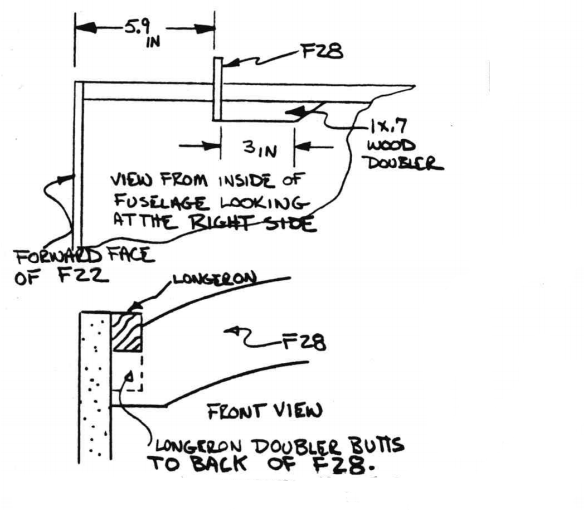 5.9
IN
F28
1x.7
WOOD
DOUBLER
3 IN
VIEW FROM INSIDE OF
FUSELAGE LOOKING
AT THE RIGHT SIDE
FORWARD FACE
OF F22
LONGERON
F28
FRONT VIEW
LONGERON DOUBLER BUTTS
TO BACK OF F28.